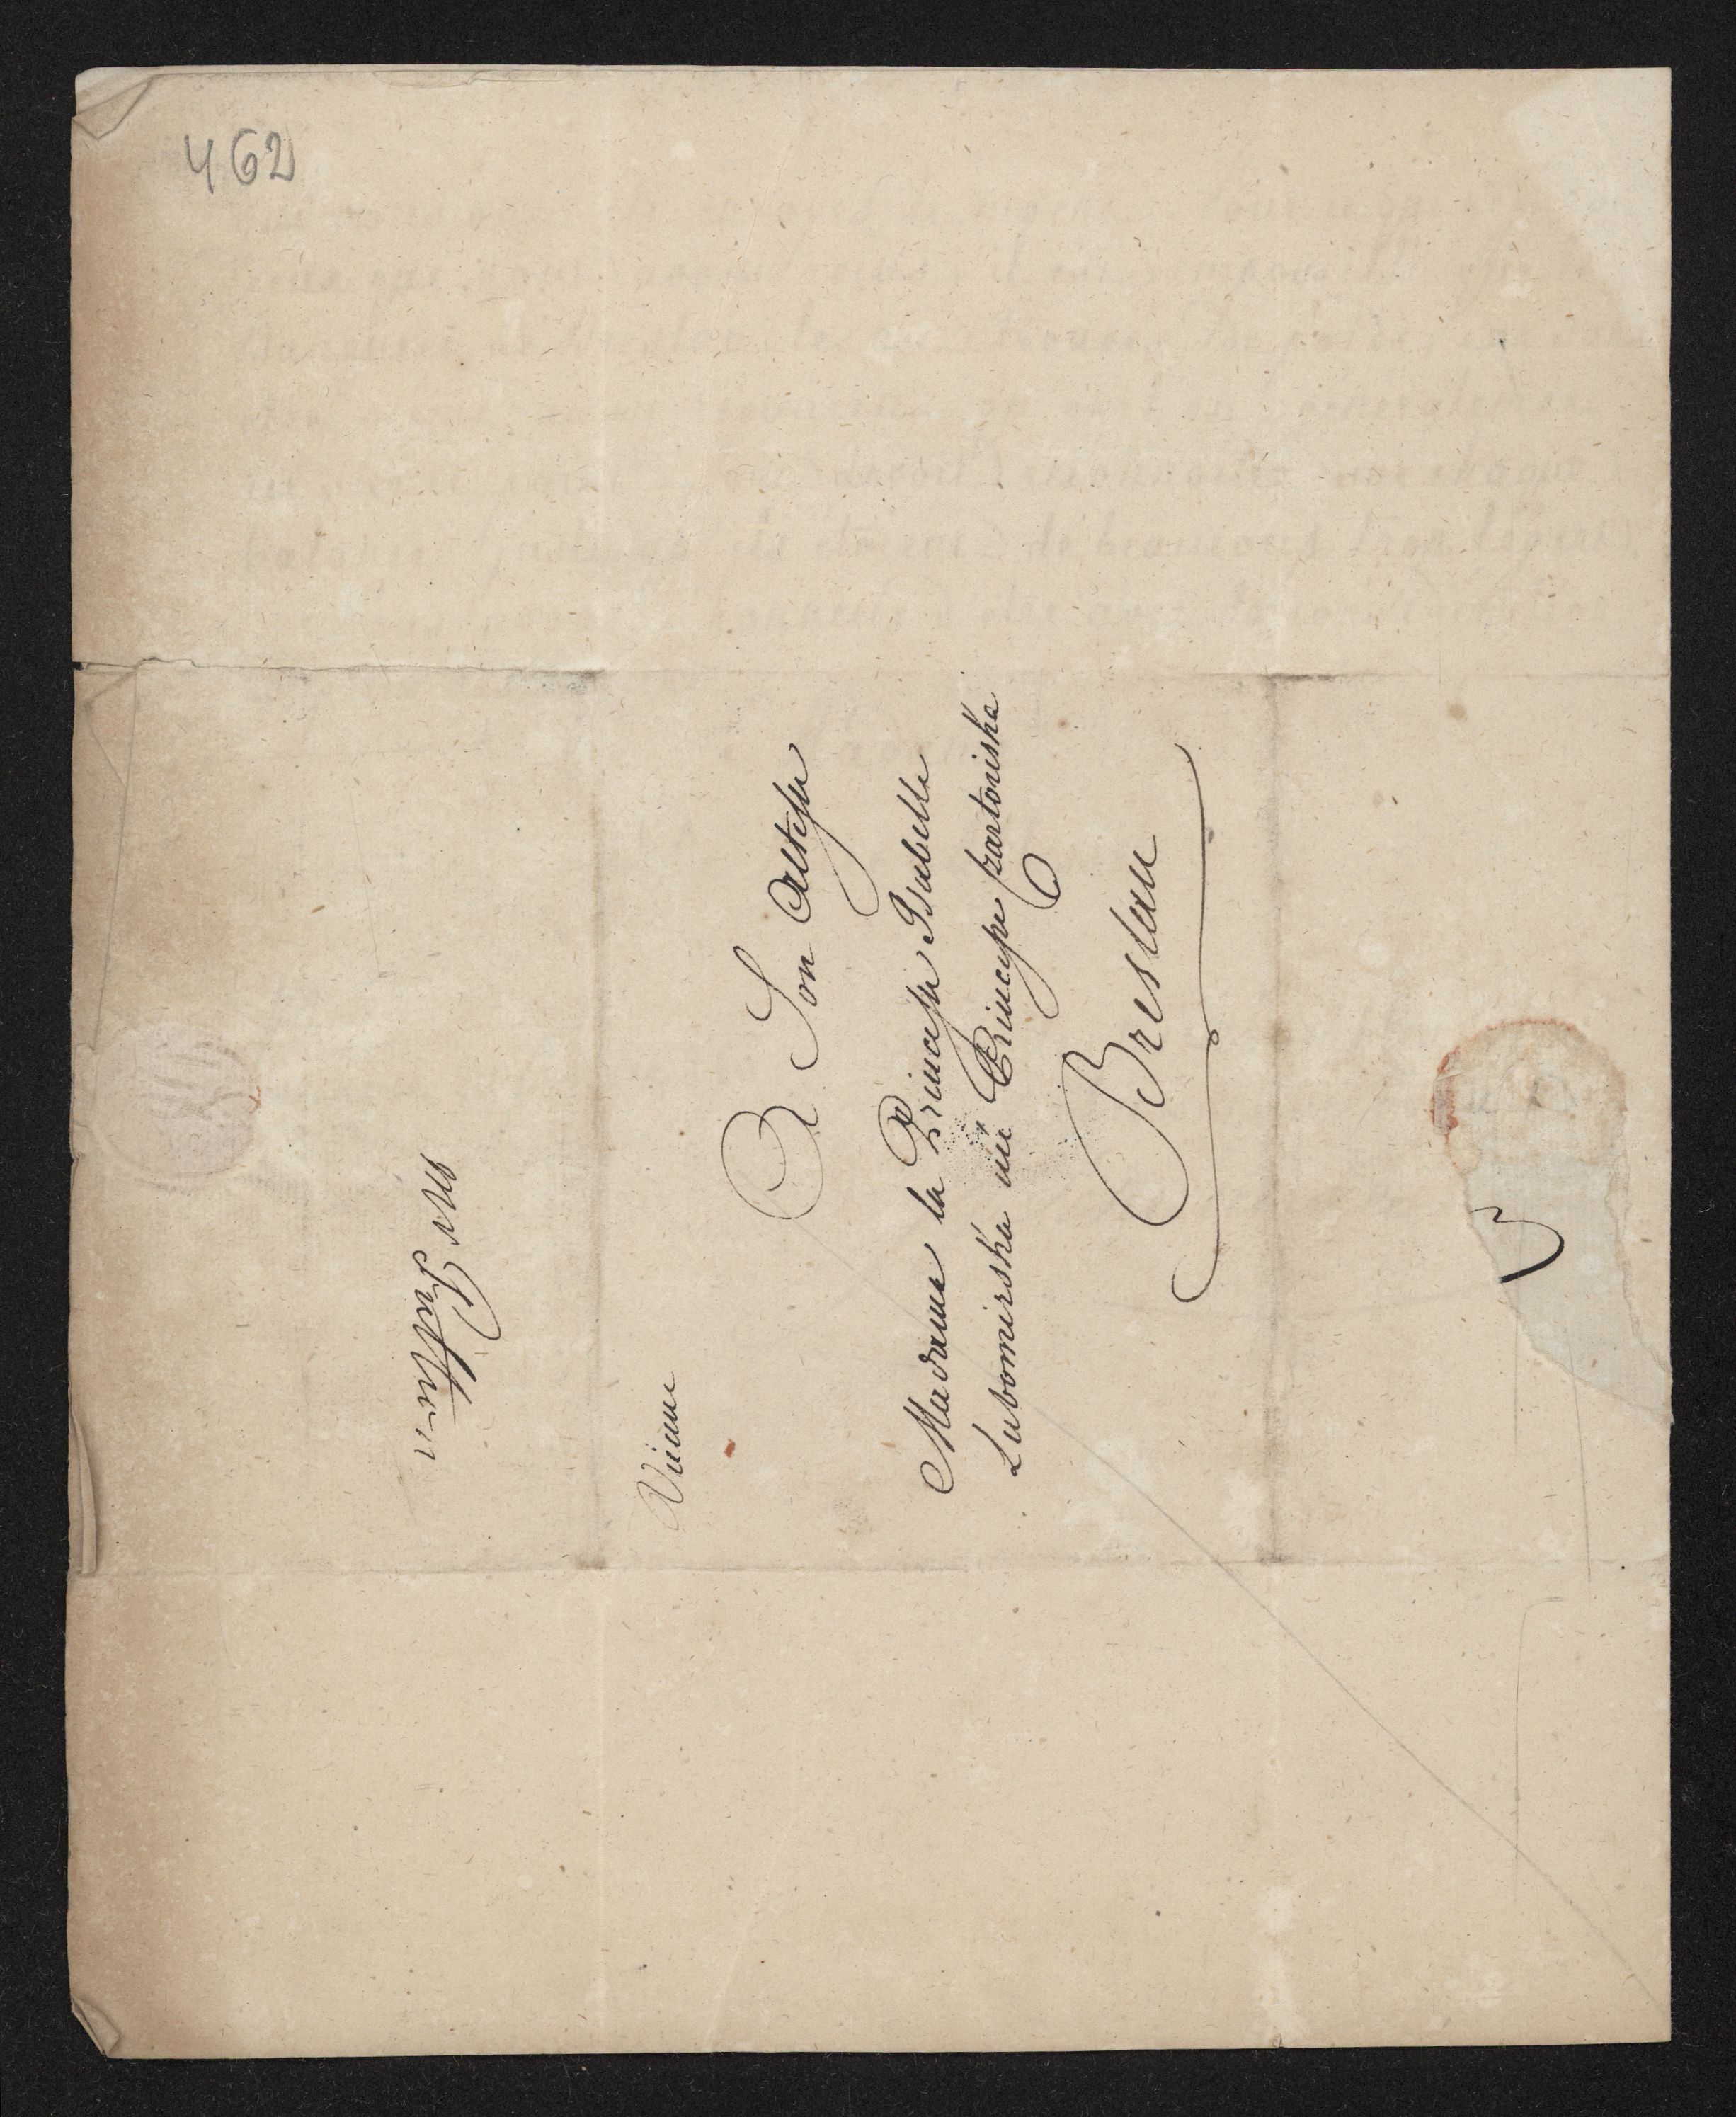 462
Vienne
A Son Altesse
Madame la Princesse Isabelle
Lubomirska née Princesse Czartoriska
Breslau
Mr
3